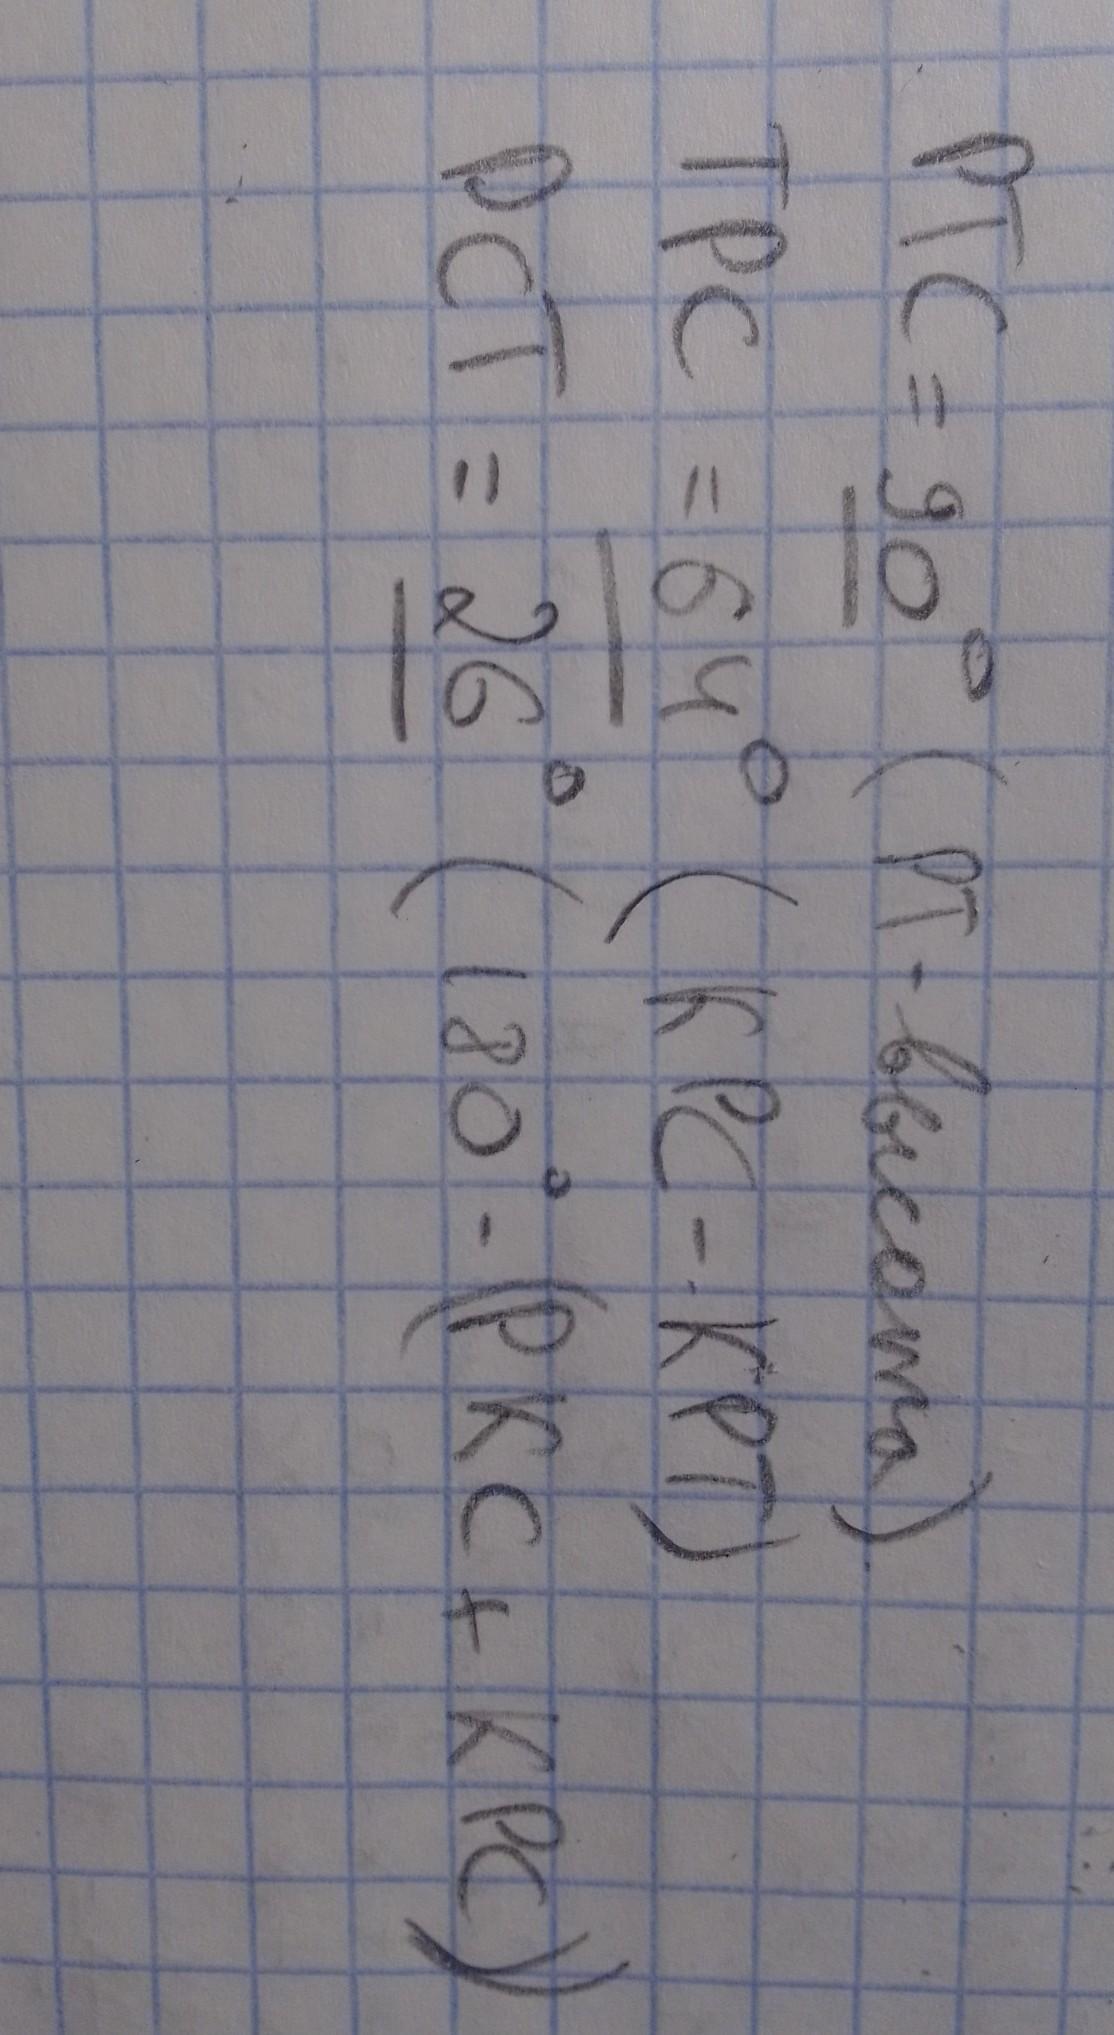 PTC = 90° (PT - высота)
TPC = 64° (KPC - KPT)
PCT = 26° (180° - (PKC + KPC))